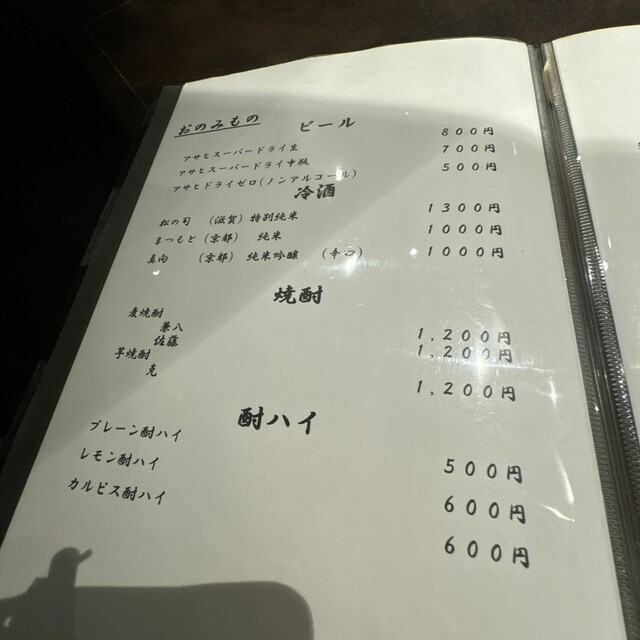 おのみもの
ビール
アサヒスーパードライ生 800円
アサヒスーパードライ中瓶 700円
アサヒドライゼロ(ノンアルコール) 500円
冷酒
松の司 (滋賀) 特別純米 1300円
まつもと (京都) 純米 1000円
真向 (京都) 純米吟醸 (辛口) 1000円
焼酎
麦焼酎
兼八 1,200円
佐藤 1,200円
芋焼酎
克 1,200円
酎ハイ
プレーン酎ハイ 500円
レモン酎ハイ 600円
カルピス酎ハイ 600円